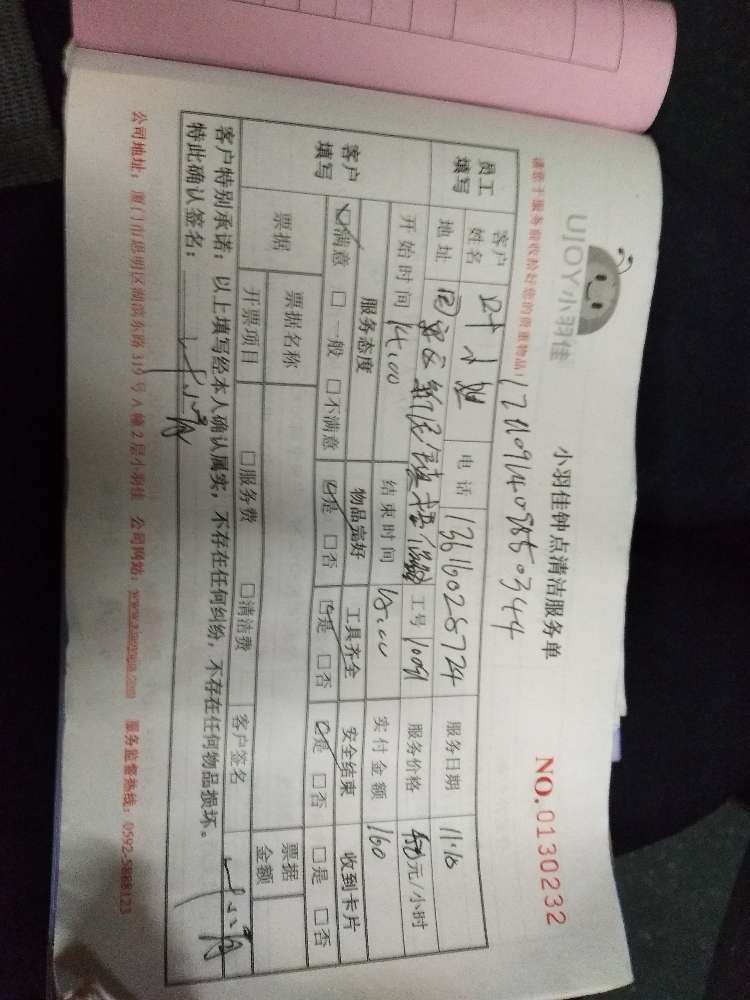 UJOY小羽佳
小羽佳钟点清洁服务单
NO.0130232
请您于服务前收拾好您的贵重物品!
员工填写 客户姓名 叶小姐 电话 13616028724 服务日期 11.10
地址 同安区新民镇 工号 10091 服务价格 元/小时
开始时间 14:00 结束时间 18:00 实付金额 160
客户填写 服务态度 物品完好 工具齐全 安全结束 收到卡片
☑满意 □一般 □不满意 ☑是 □否 ☑是 □否 ☑是 □否 □是 □否
票据 票据名称 票据金额
开票项目 □服务费 □清洁费 客户签名
客户特别承诺:以上填写经本人确认属实,不存在任何纠纷,不存在任何物品损坏。
特此确认签名:
公司地址:厦门市思明区湖滨东路319号A幢2层小羽佳 公司网站:www.xiaoyujia.com 服务监督热线:0592-5888123